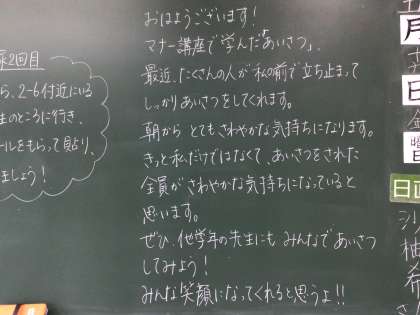 おはようございます！
マナー講座で学んだ「あいさつ」。
最近、たくさんの人が私の前で立ち止まって
しっかりあいさつをしてくれます。
朝から とてもさわやかな気持ちになります。
きっと私だけではなくて、あいさつをされた
全員がさわやかな気持ちになっていると
思います。
ぜひ、他学年の先生にも みんなであいさつ
してみよう！
みんな笑顔になってくれると思うよ！！
2回目
ら、2-6付近にいる
のところに行き、
ールをもらって貼り、
ましょう！
月
日
曜
日直